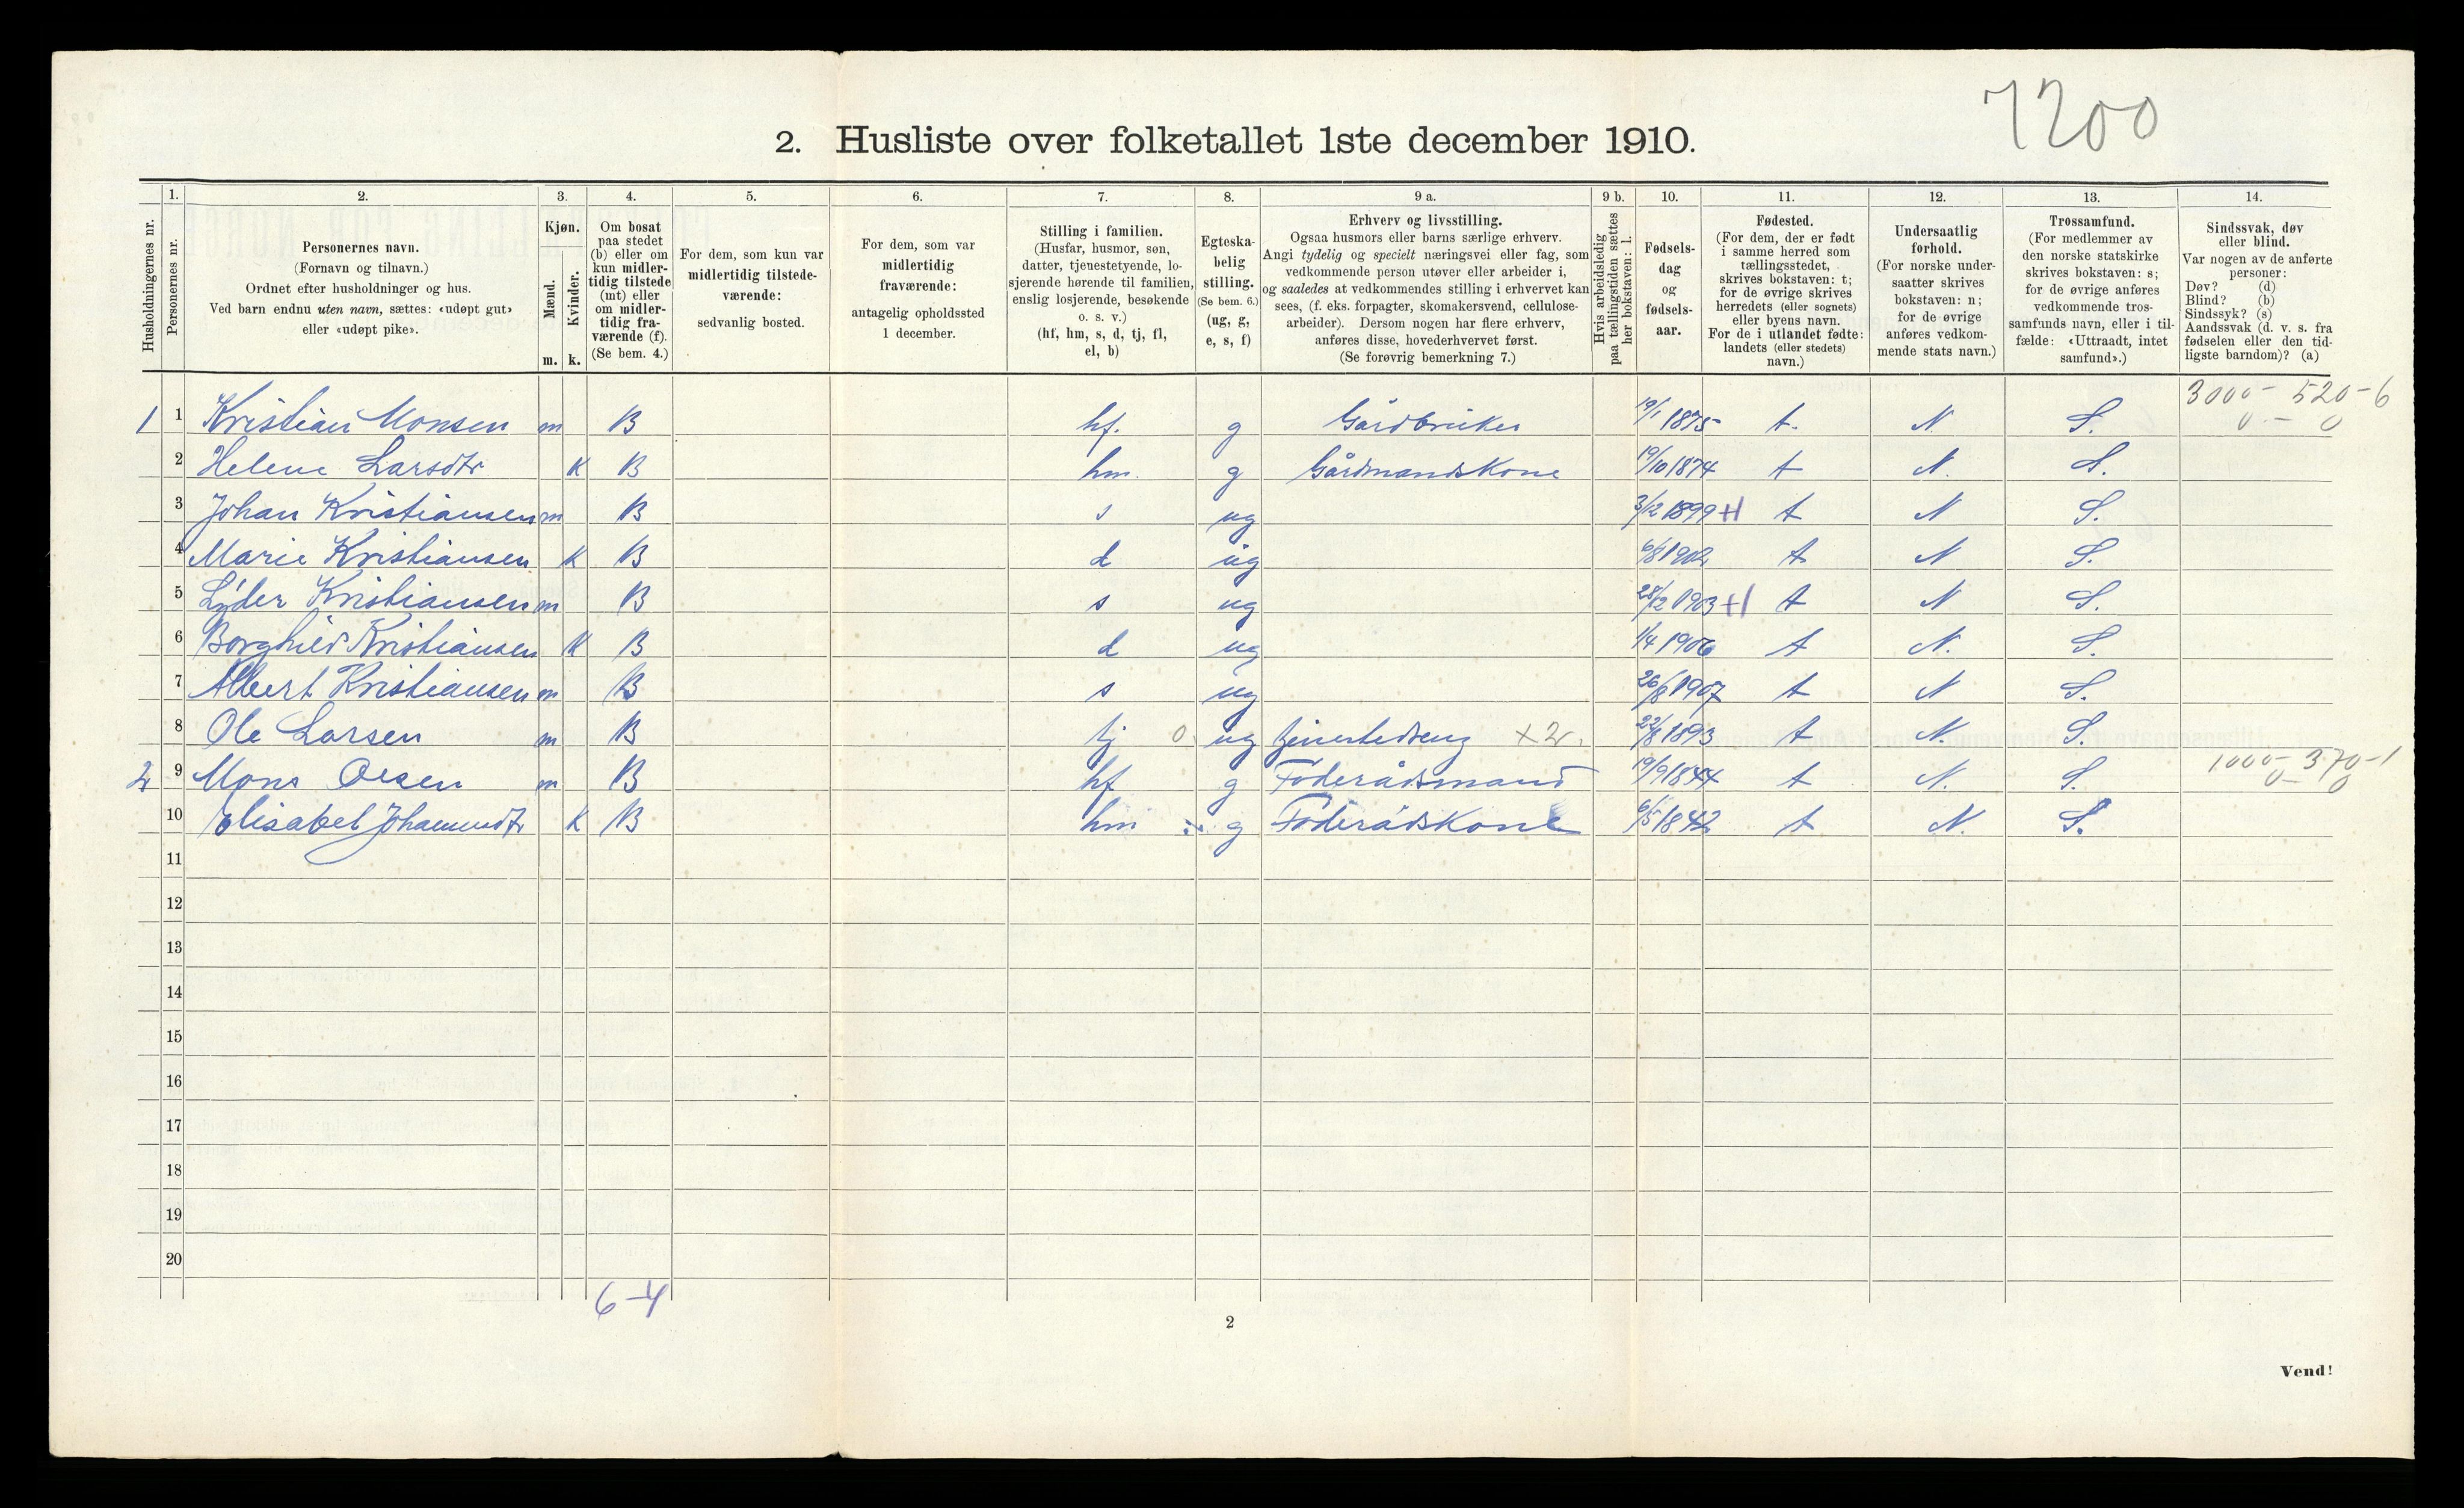 7200
2. Husliste over folketallet 1ste december 1910.
Husholdningernes nr.
1.
Personernes nr.
2.
Personernes navn.
(Fornavn og tilnavn.)
Ordnet efter husholdninger og hus.
Ved barn endnu uten navn, sættes: «udøpt gut»
eller «udøpt pike».
3.
Kjøn.
Mænd.
Kvinder.
m. k.
4.
Om bosat
paa stedet
(b) eller om
kun midler-
tidig tilstede
(mt) eller
om midler-
tidig fra-
værende (f).
(Se bem. 4.)
5.
For dem, som kun var
midlertidig tilstede-
værende:
sedvanlig bosted.
6.
For dem, som var
midlertidig
fraværende:
antagelig opholdssted
1 december.
7.
Stilling i familien.
(Husfar, husmor, søn,
datter, tjenestetyende, lo-
sjerende hørende til familien,
enslig losjerende, besøkende
o. s. v.)
(hf, hm, s, d, tj, fl,
el, b)
8.
Egteska-
belig
stilling.
(Se bem. 6.)
(ug, g,
e, s, f)
9 a.
Erhverv og livsstilling.
Ogsaa husmors eller barns særlige erhverv.
Angi tydelig og specielt næringsvei eller fag, som
vedkommende person utøver eller arbeider i,
og saaledes at vedkommendes stilling i erhvervet kan
sees, (f. eks. forpagter, skomakersvend, cellulose-
arbeider). Dersom nogen har flere erhverv,
anføres disse, hovederhvervet først.
(Se forøvrig bemerkning 7.)
9 b.
Hvis arbeidsledig
paa tællingstiden sættes
her bokstaven: l.
10.
Fødsels-
dag
og
fødsels-
aar.
11.
Fødested.
(For dem, der er født
i samme herred som
tællingsstedet,
skrives bokstaven: t;
for de øvrige skrives
herredets (eller sognets)
eller byens navn.
For de i utlandet fødte:
landets (eller stedets)
navn.)
12.
Undersaatlig
forhold.
(For norske under-
saatter skrives
bokstaven: n;
for de øvrige
anføres vedkom-
mende stats navn.)
13.
Trossamfund.
(For medlemmer av
den norske statskirke
skrives bokstaven: s;
for de øvrige anføres
vedkommende tros-
samfunds navn, eller i til-
fælde: «Uttraadt, intet
samfund».)
14.
Sindssvak, døv
eller blind.
Var nogen av de anførte
personer:
Døv? (d)
Blind? (b)
Sindssyk? (s)
Aandssvak (d. v. s. fra
fødselen eller den tid-
ligste barndom)? (a)
1 1 Kristian Monsen m B hf. g Gårdbruker 19/1 1875 t. N. S. 3000 - 520 - 6
0 - 0
2 Helene Larsdtr K B hm. g Gårdmandskone 19/10 1874 t N. S.
3 Johan Kristiansen m B s ug 3/12 1899 H t N S.
4 Marie Kristiansen K B d ug 6/8 1902 t N S.
5 Lyder Kristiansen m B s ug 28/12 1903 H t N S.
6 Borghild Kristiansen K B d ug 1/4 1906 t N. S.
7 Albert Kristiansen m B s ug 26/8 1907 t N S.
8 Ole Larsen m B tj 0. ug tjenestedreng x 2. 22/8 1893 t N. S.
2 9 Mons Olsen m B hf g Føderådsmand 19/9 1844 t N. S. 1000 - 370 - 1
0 - 0
10 Elisabet Johannesdtr K B hm g Føderådskone 6/5 1842 t N. S.
11
12
13
14
15
16
17
18
19
20
6 - 4
2
Vend!